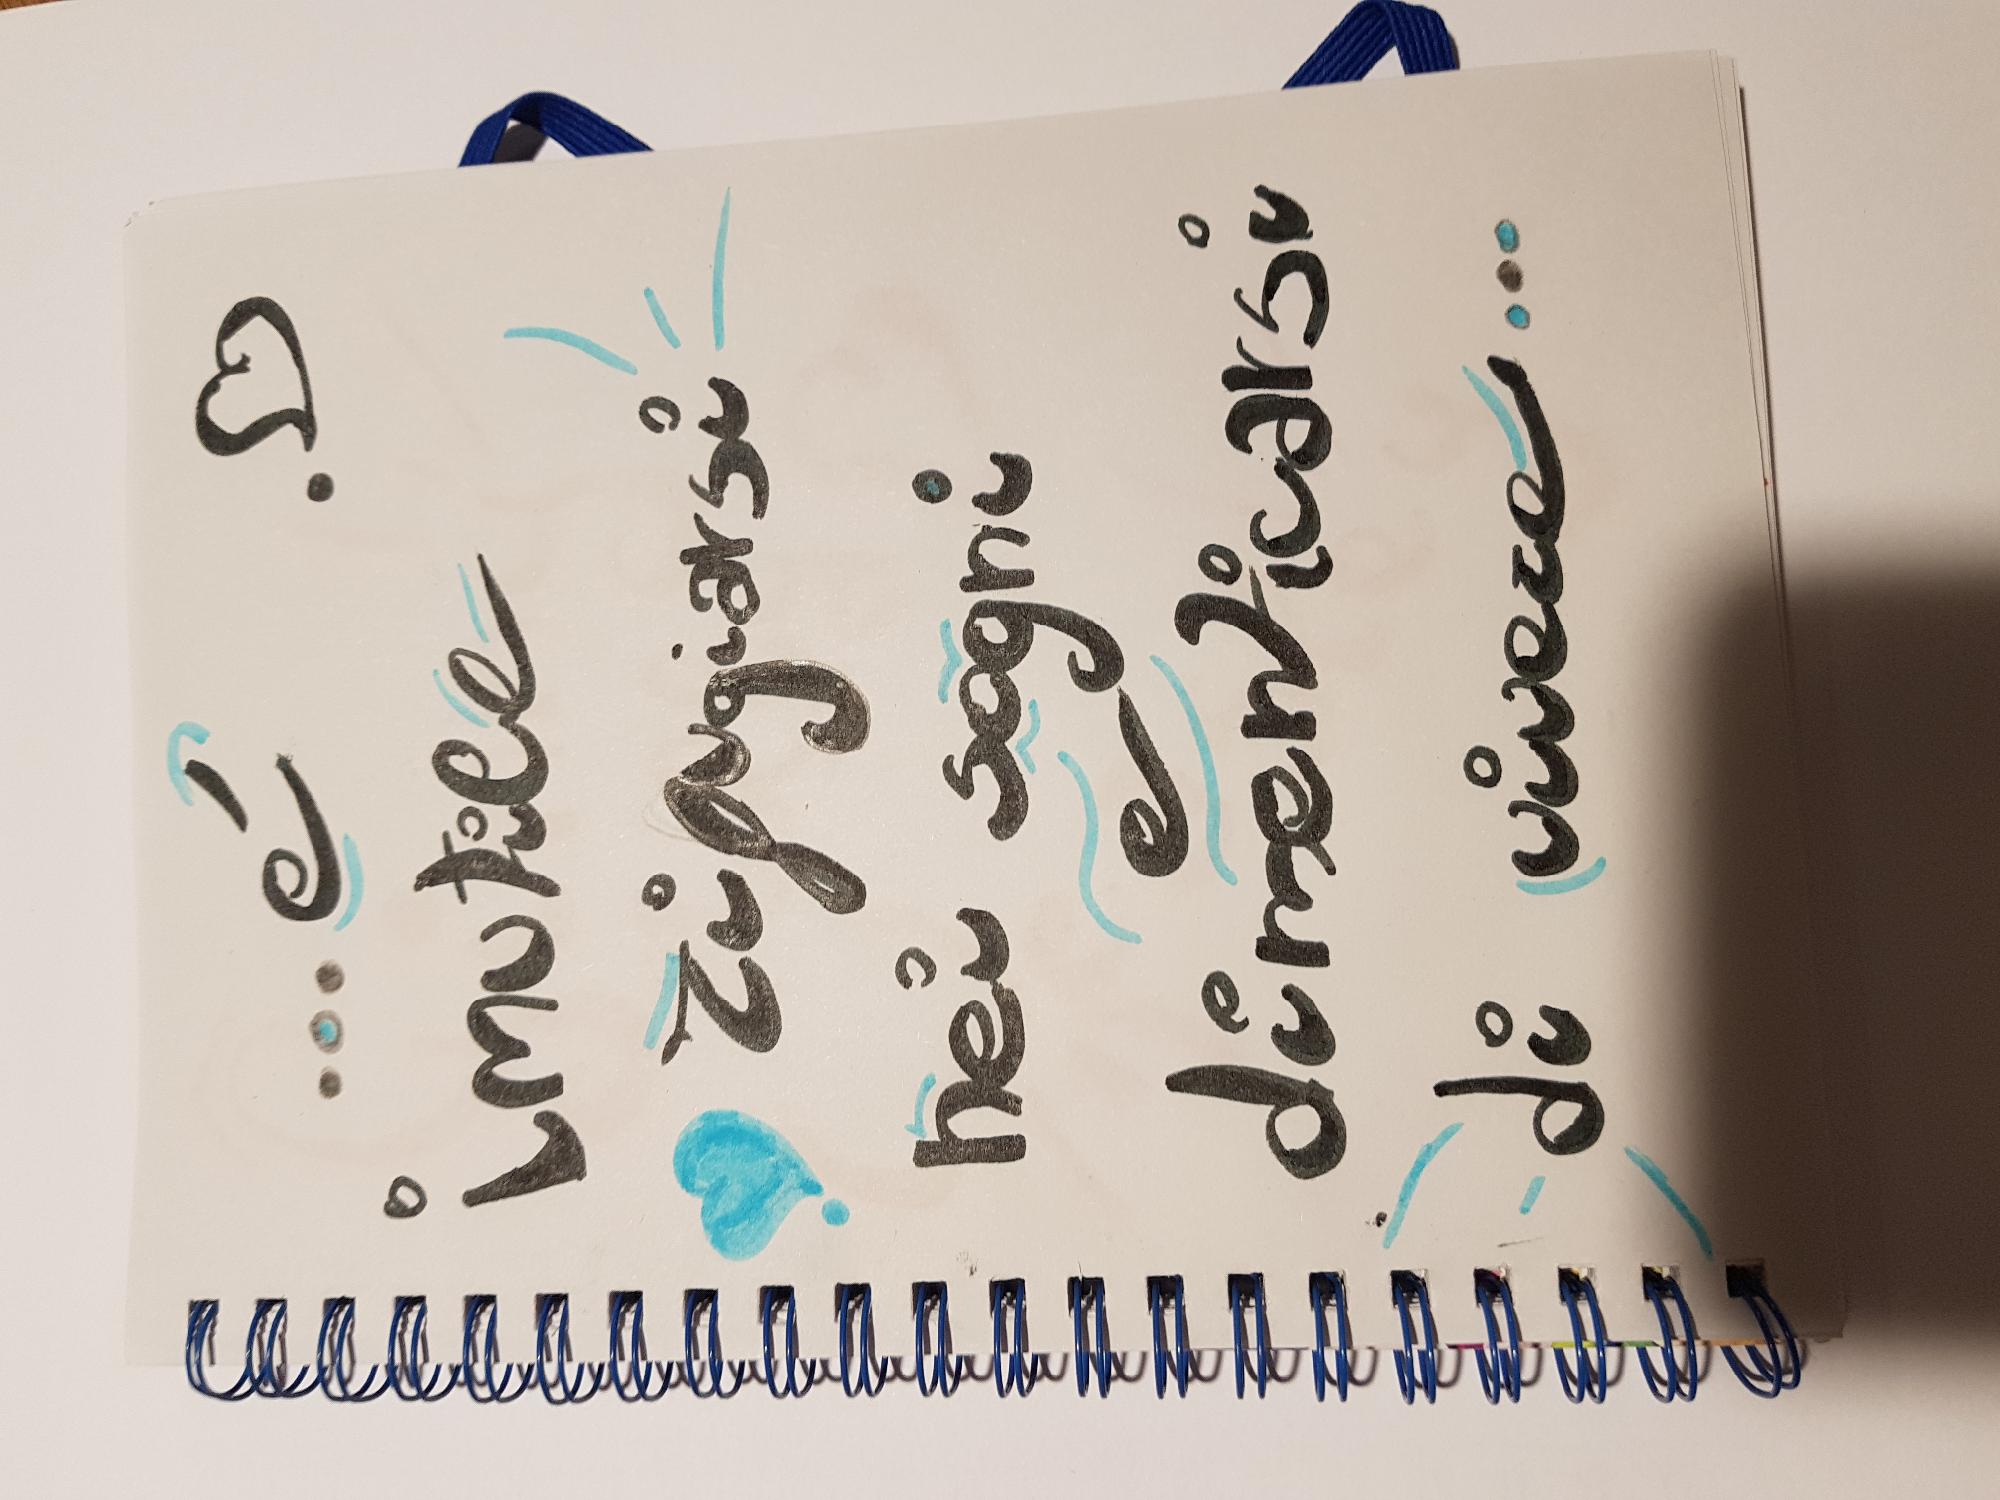 ... é
inutile
rifugiarsi
nei sogni
e
dimenticarsi
di vivere ...